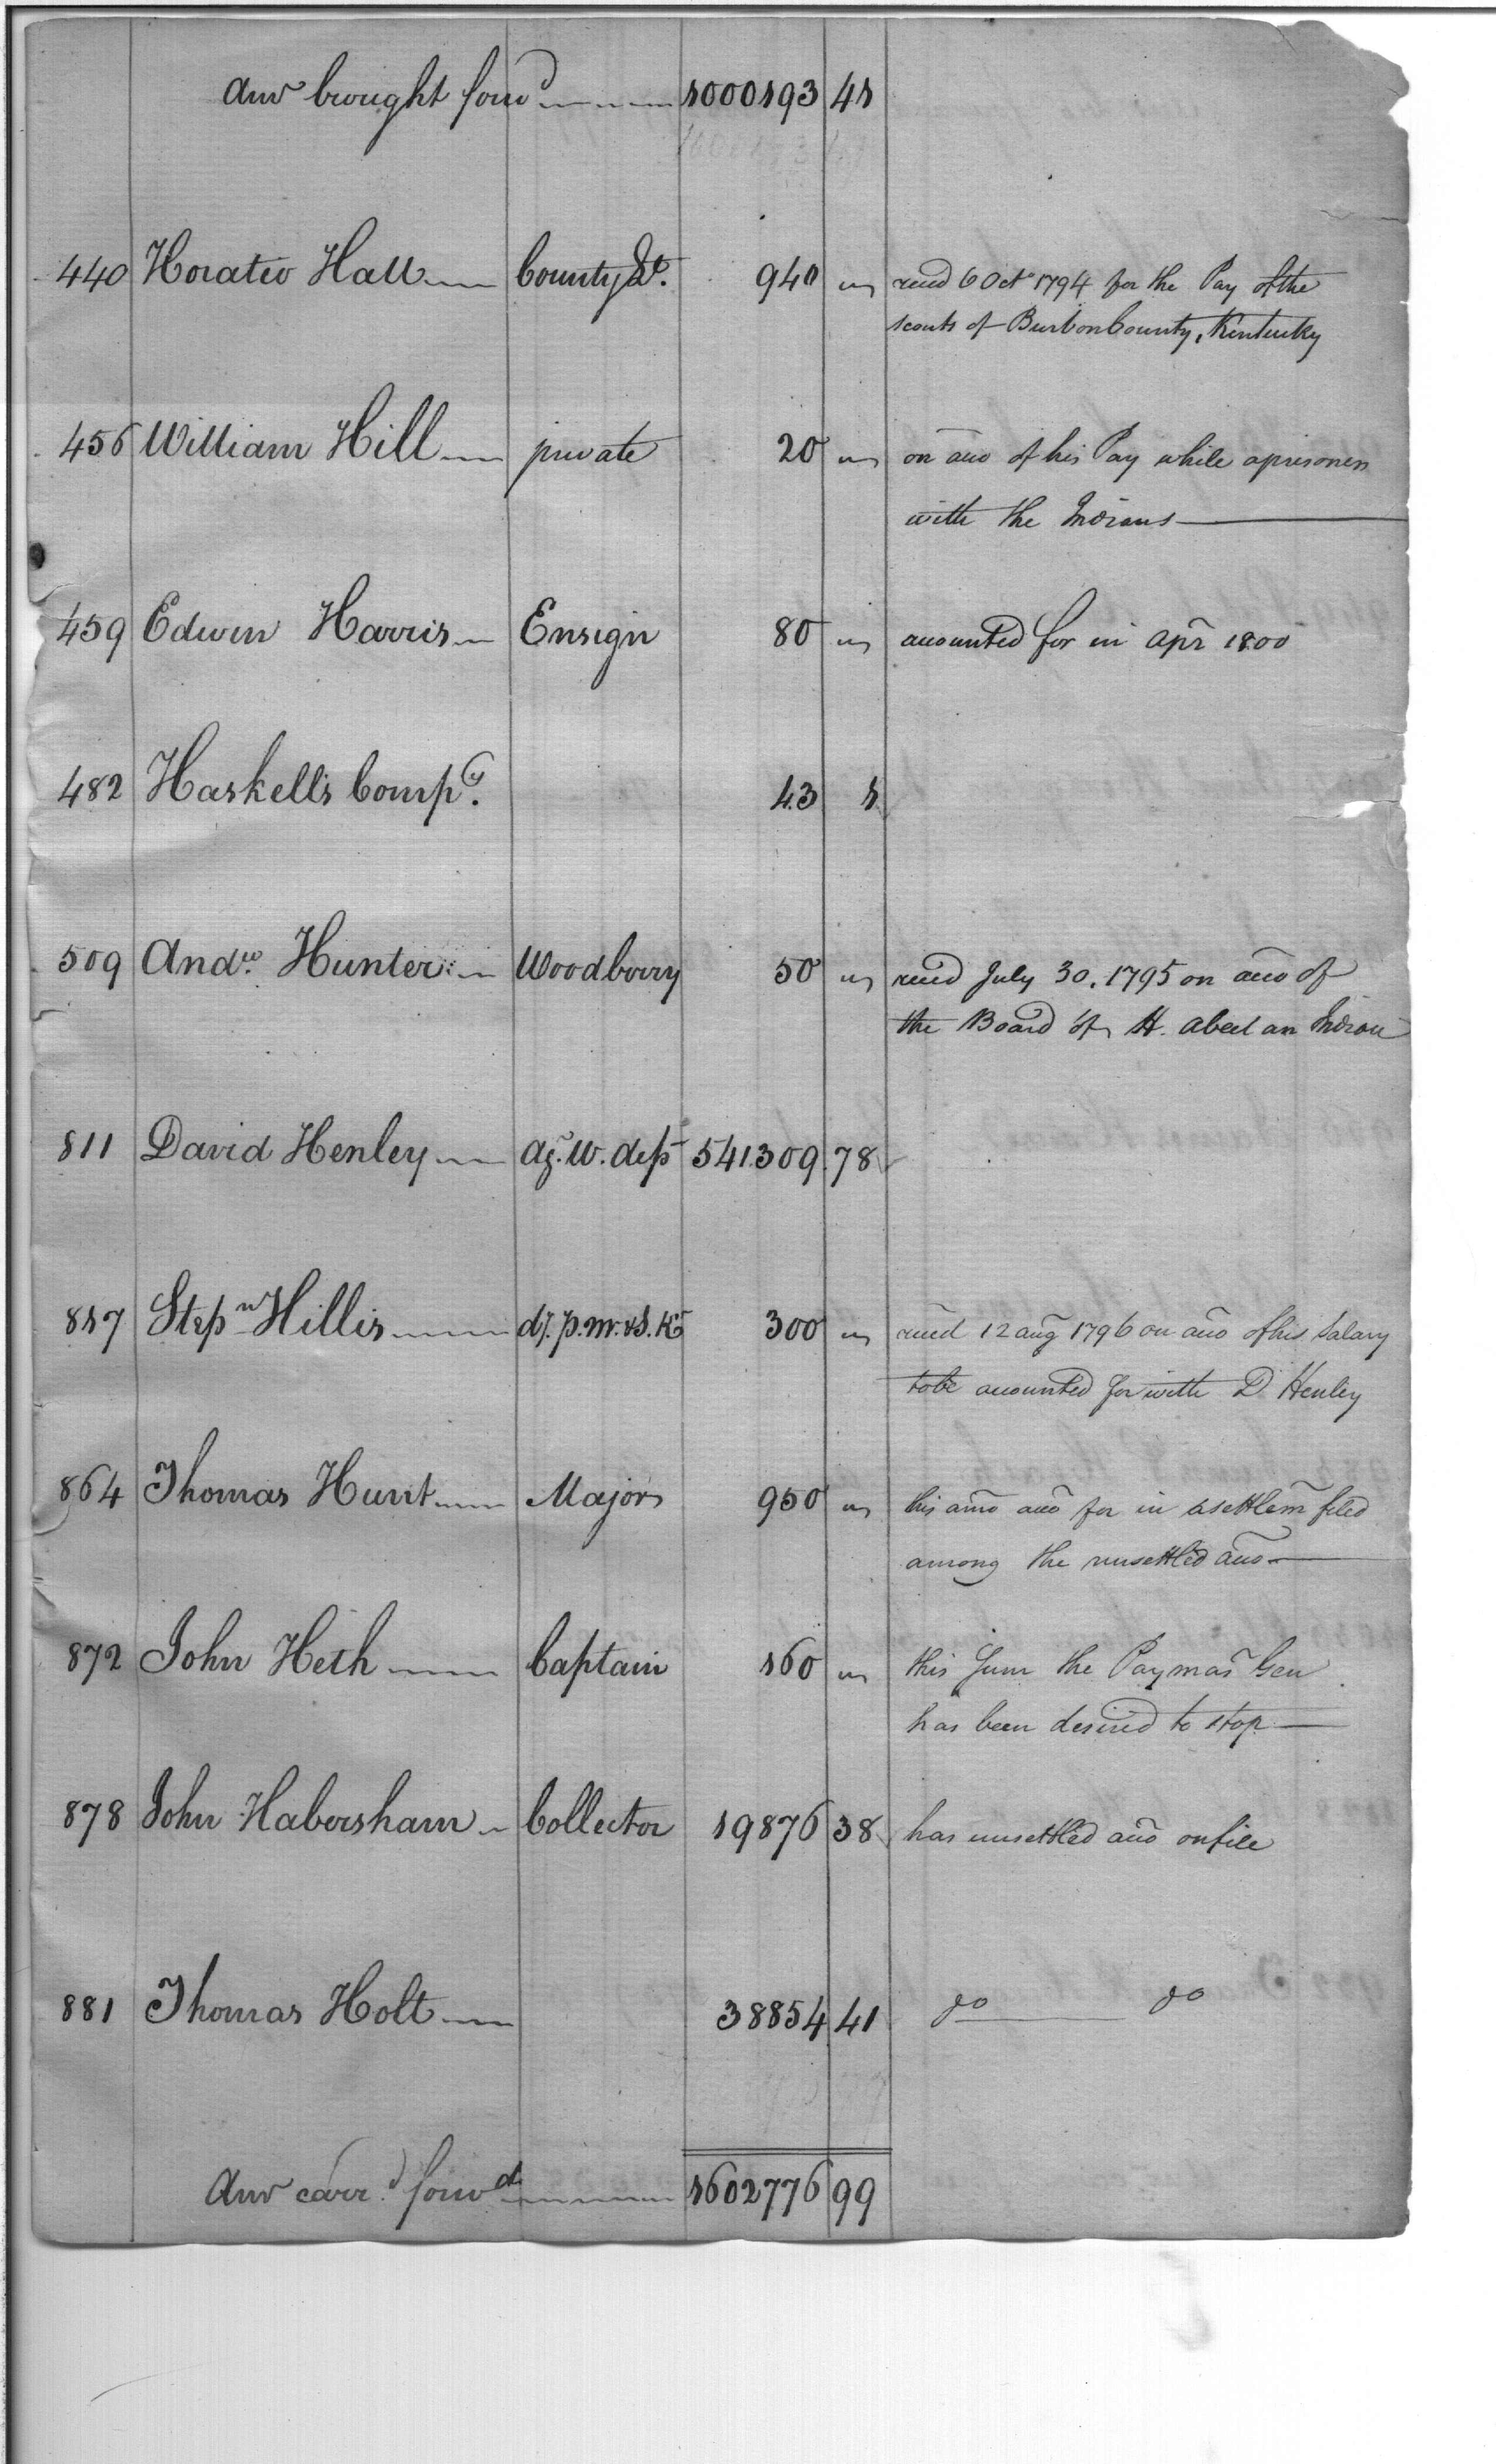 Amt brought forwd 1000193 41
440 Horatio Hall County Lt. 940 recd 6 Oct 1794 for the Pay of the
scouts of Burbon County, Kentucky
456 William Hill private 20 on acco of his Pay while a prisoner
with the Indians
459 Edwin Harris Ensign 80 accounted for in Apr 1800
482 Haskell's Compy. 43 1
509 Andw. Hunter Woodberry 50 recd July 30. 1795 on acco of
the Board of H. Abeel an Indian
811 David Henley Ag. W. dept 541309 78
817 Stepn Hillis 300 recd 12 aug 1796 on acco of his Salary
to be accounted for with D Henley
864 Thomas Hunt Major 950 his amo acco for in a settlem filed
among the unsettled acco
872 John Heth Captain 160 this Sum the Paymas Gen
has been desired to stop
878 John Habersham Collector 19876 38 has unsettled acco on file
881 Thomas Holt 38854 41 do do
Amt carrd forwd 1602776 99